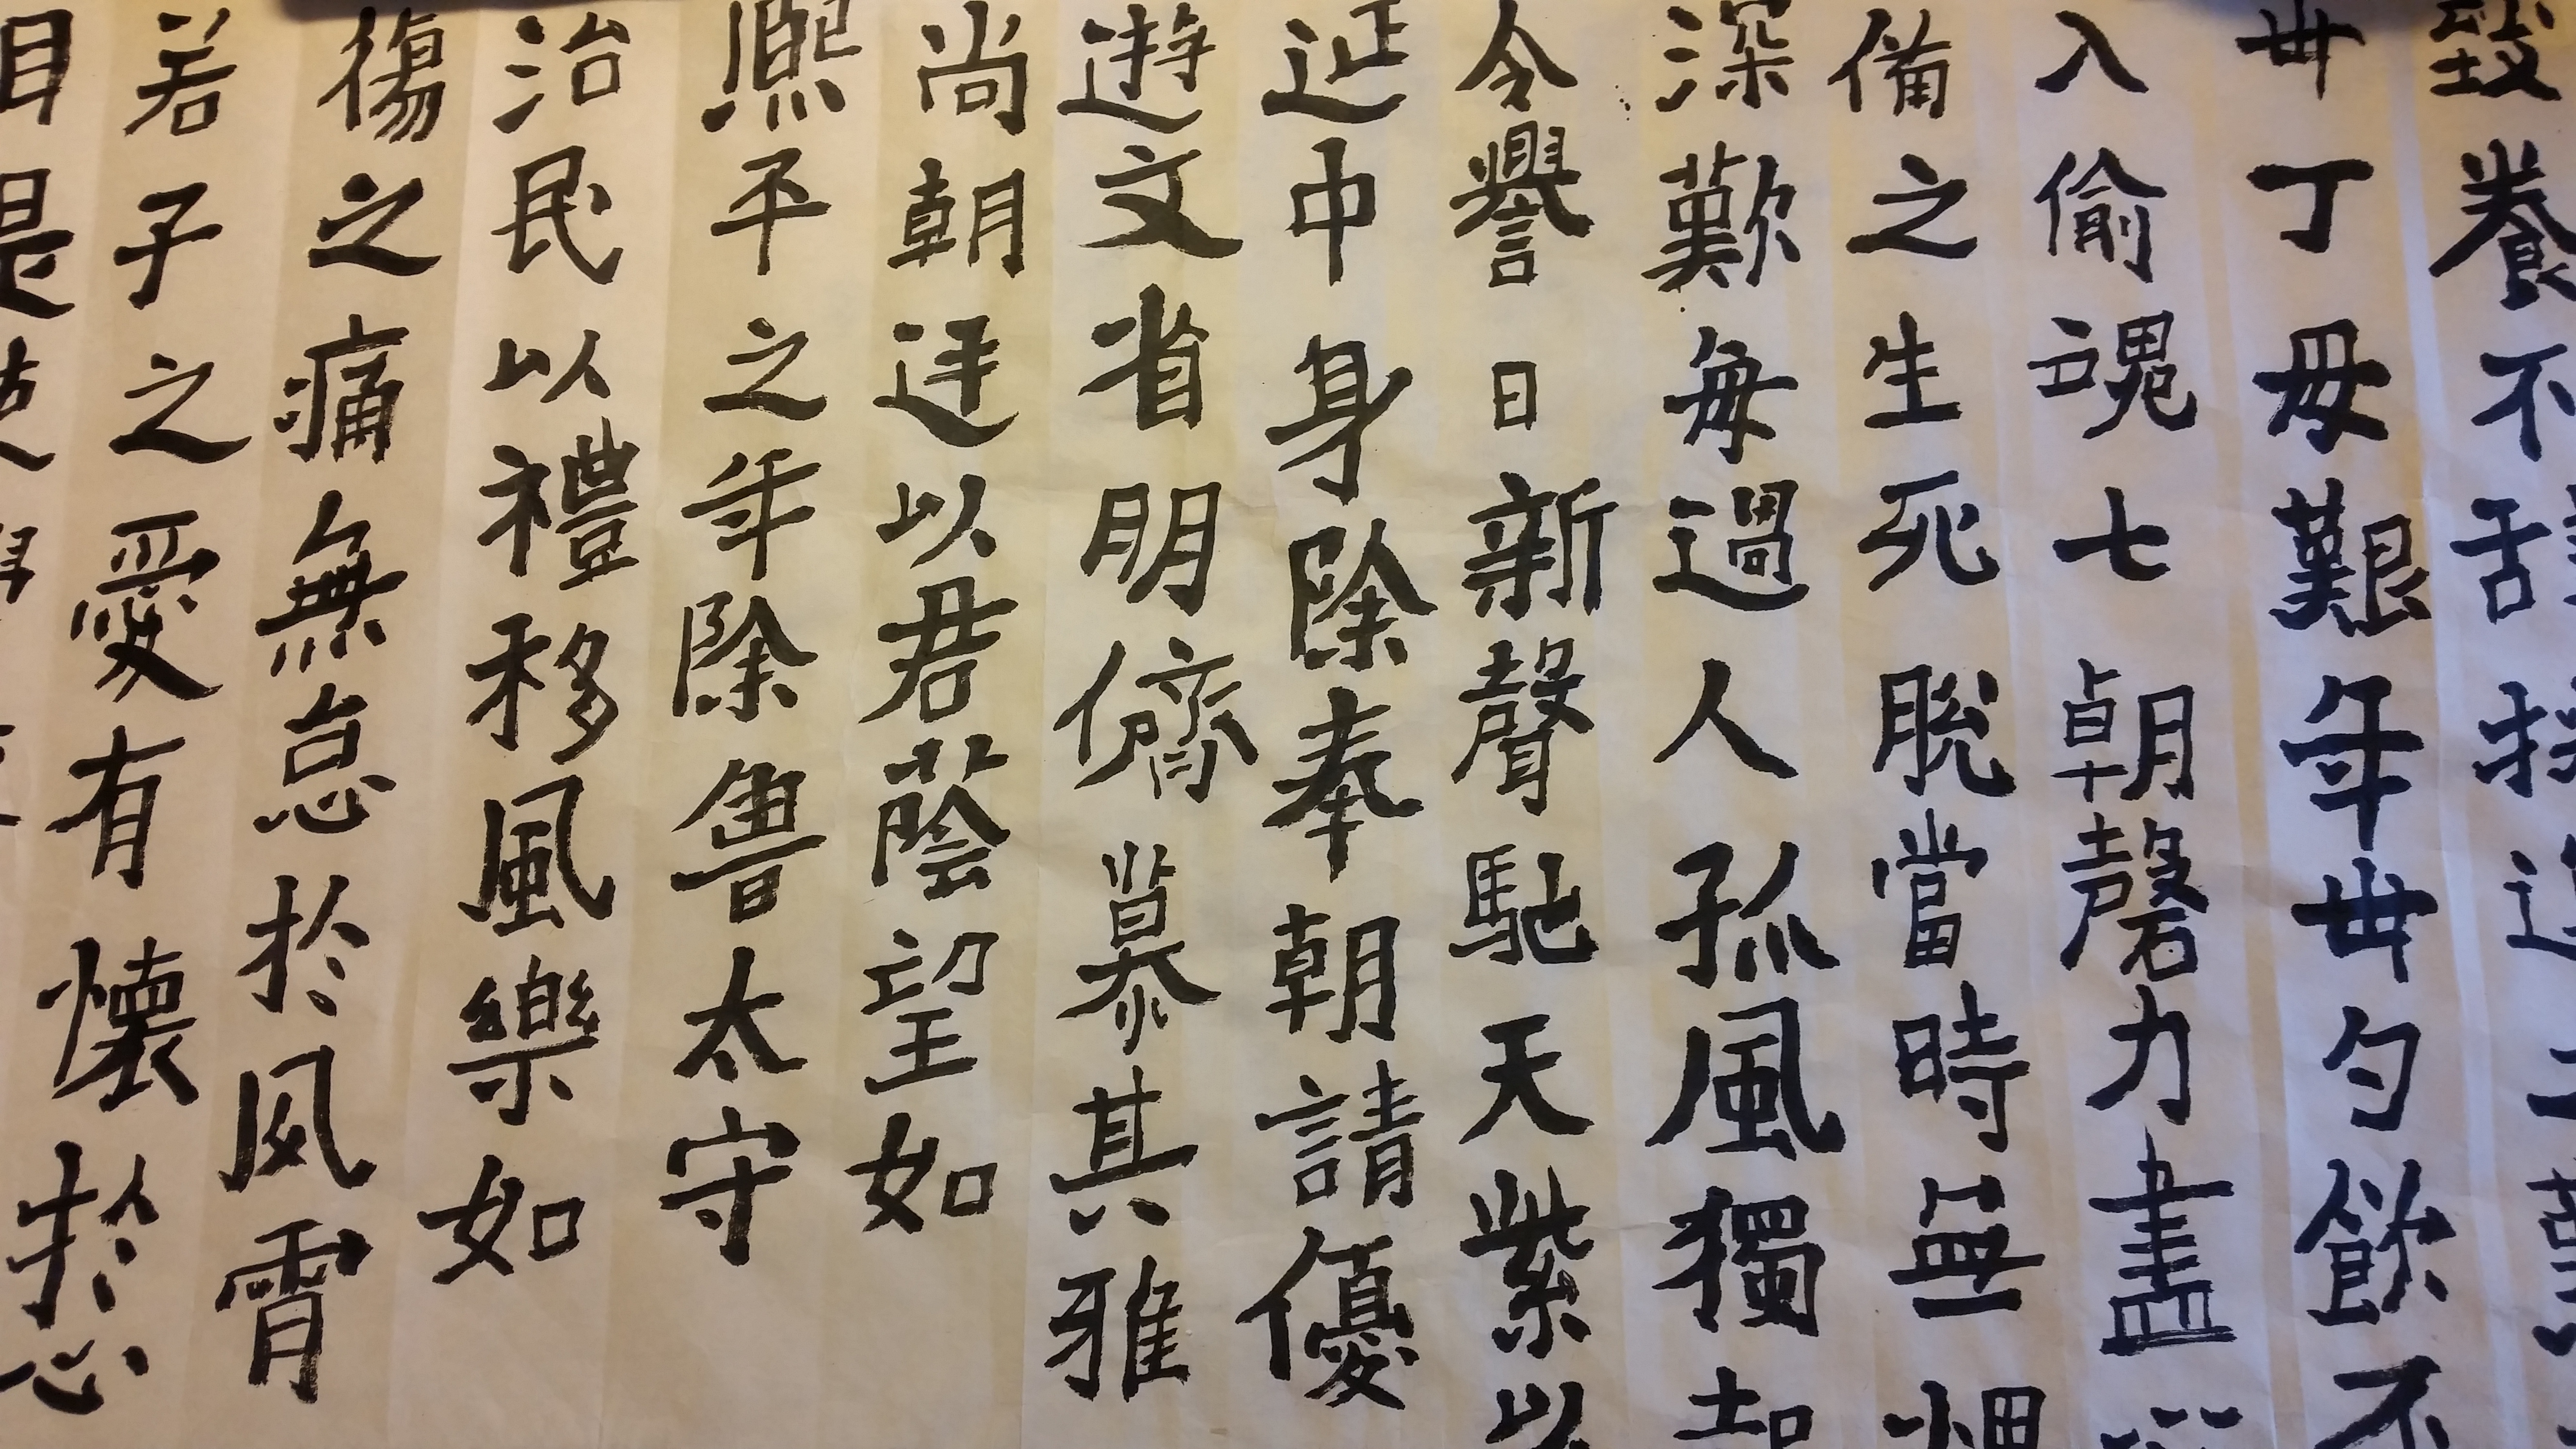 養不
丁母艱年卌勺飲不
入偷魂七朝磬力盡
備之生死脫當時無
深歎每過人孤風獨
令譽日新聲馳天紫以
延中身除奉朝請優
遊文省朋儕慕其雅
尚朝廷以君蔭望如
熙平之年除魯太守
治民以禮移風樂如
傷之痛無怠於夙霄
若子之愛有懷於心